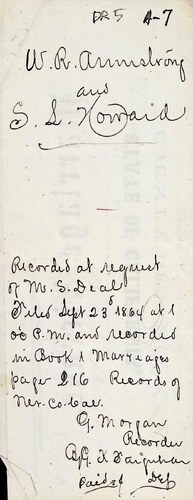 DR5 A-7
W. R. Armstrong
and
S. L. Howard
Recorded at request
of M. S. Deal
Filed Sept 23d 1864 at 1
oc P.M. and recorded
in Book 1 Marreages
page 216 Records of
Ner. Co. Cal.
G. Morgan
Recorder
By Farquhar
Paid Dep